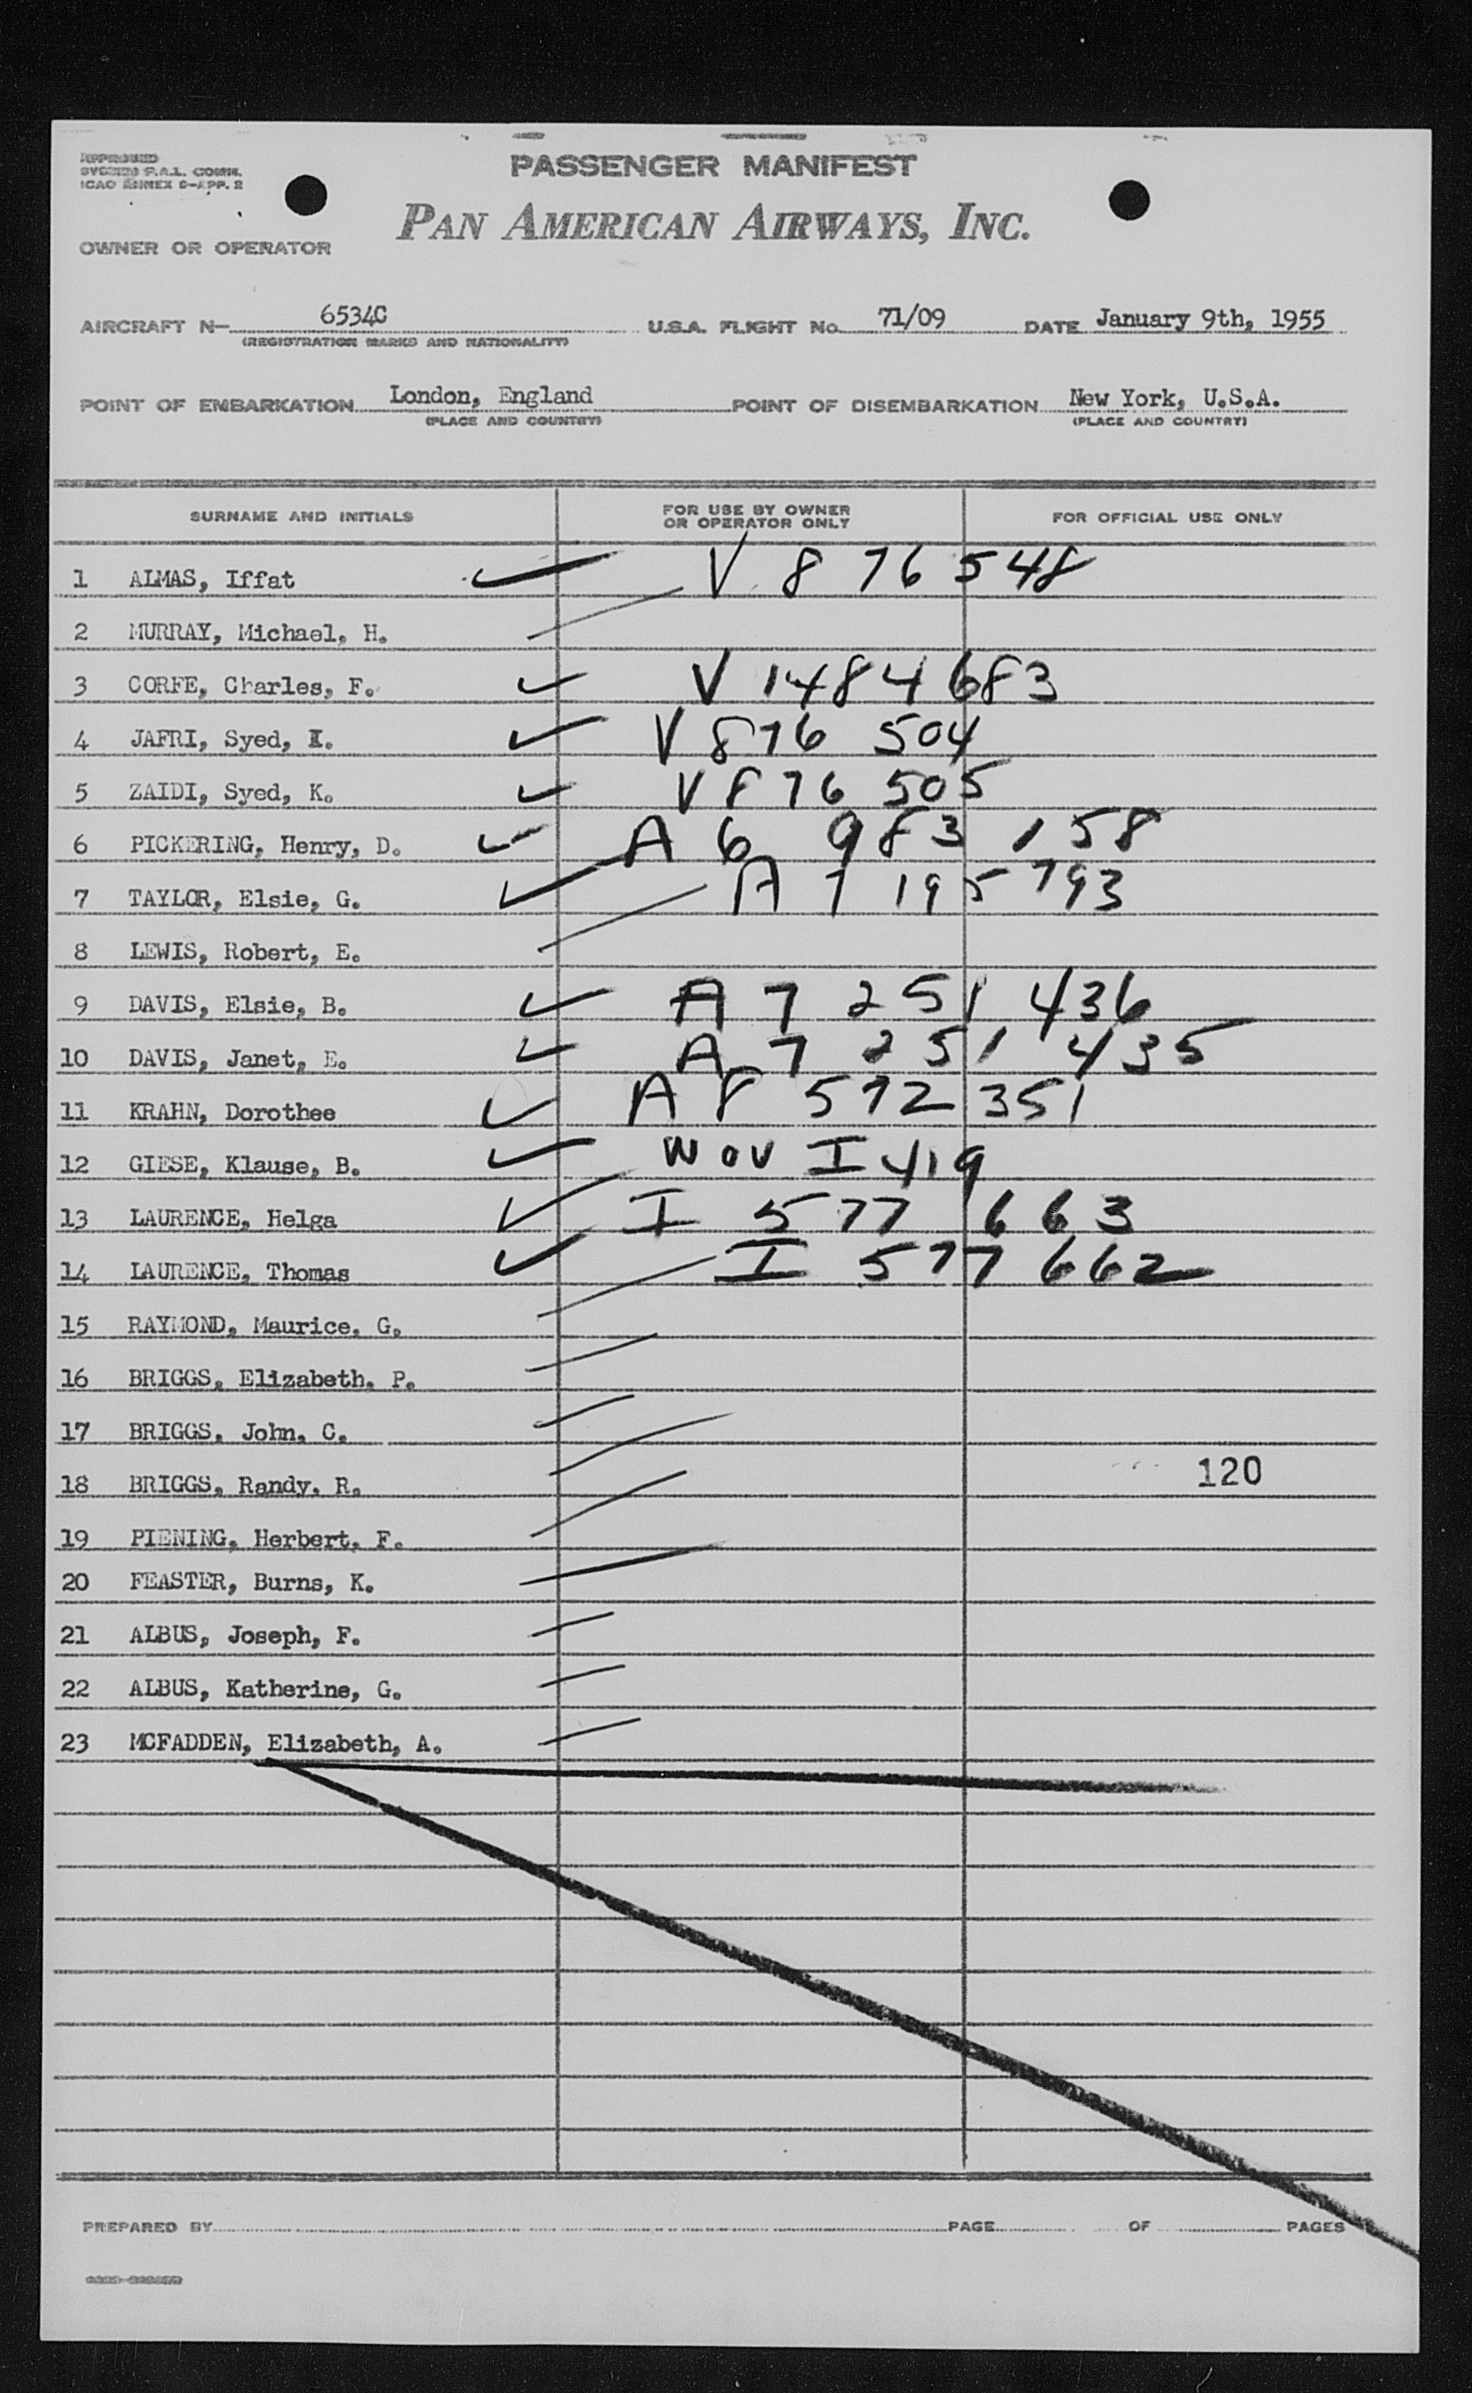 APPROVED
ICAO ANNEX 9-APP. 2
PASSENGER MANIFEST
PAN AMERICAN AIRWAYS, INC.
OWNER OR OPERATOR
AIRCRAFT N- 6534C U.S.A. FLIGHT No. 71/09 DATE January 9th, 1955
(REGISTRATION MARKS AND NATIONALITY)
POINT OF EMBARKATION London, England POINT OF DISEMBARKATION New York, U.S.A.
(PLACE AND COUNTRY) (PLACE AND COUNTRY)
SURNAME AND INITIALS FOR USE BY OWNER OR OPERATOR ONLY FOR OFFICIAL USE ONLY
1 ALMAS, Iffat V 876 548
2 MURRAY, Michael, H.
3 CORFE, Charles, F. V 1484683
4 JAFRI, Syed, I. V 876 504
5 ZAIDI, Syed, K. V 876 505
6 PICKERING, Henry, D. A 6 983 158
7 TAYLOR, Elsie, G. A 7 195 793
8 LEWIS, Robert, E.
9 DAVIS, Elsie, B. A 7 251 436
10 DAVIS, Janet, E. A 7 251 435
11 KRAHN, Dorothee A 8 572 351
12 GIESE, Klause, B. WOV I 419
13 LAURENCE, Helga I 577 663
14 LAURENCE, Thomas I 577 662
15 RAYMOND, Maurice, G.
16 BRIGGS, Elizabeth, P.
17 BRIGGS, John, C.
18 BRIGGS, Randy, R. 120
19 PIENING, Herbert, F.
20 FEASTER, Burns, K.
21 ALBUS, Joseph, F.
22 ALBUS, Katherine, G.
23 MCFADDEN, Elizabeth, A.
PREPARED BY PAGE OF PAGES